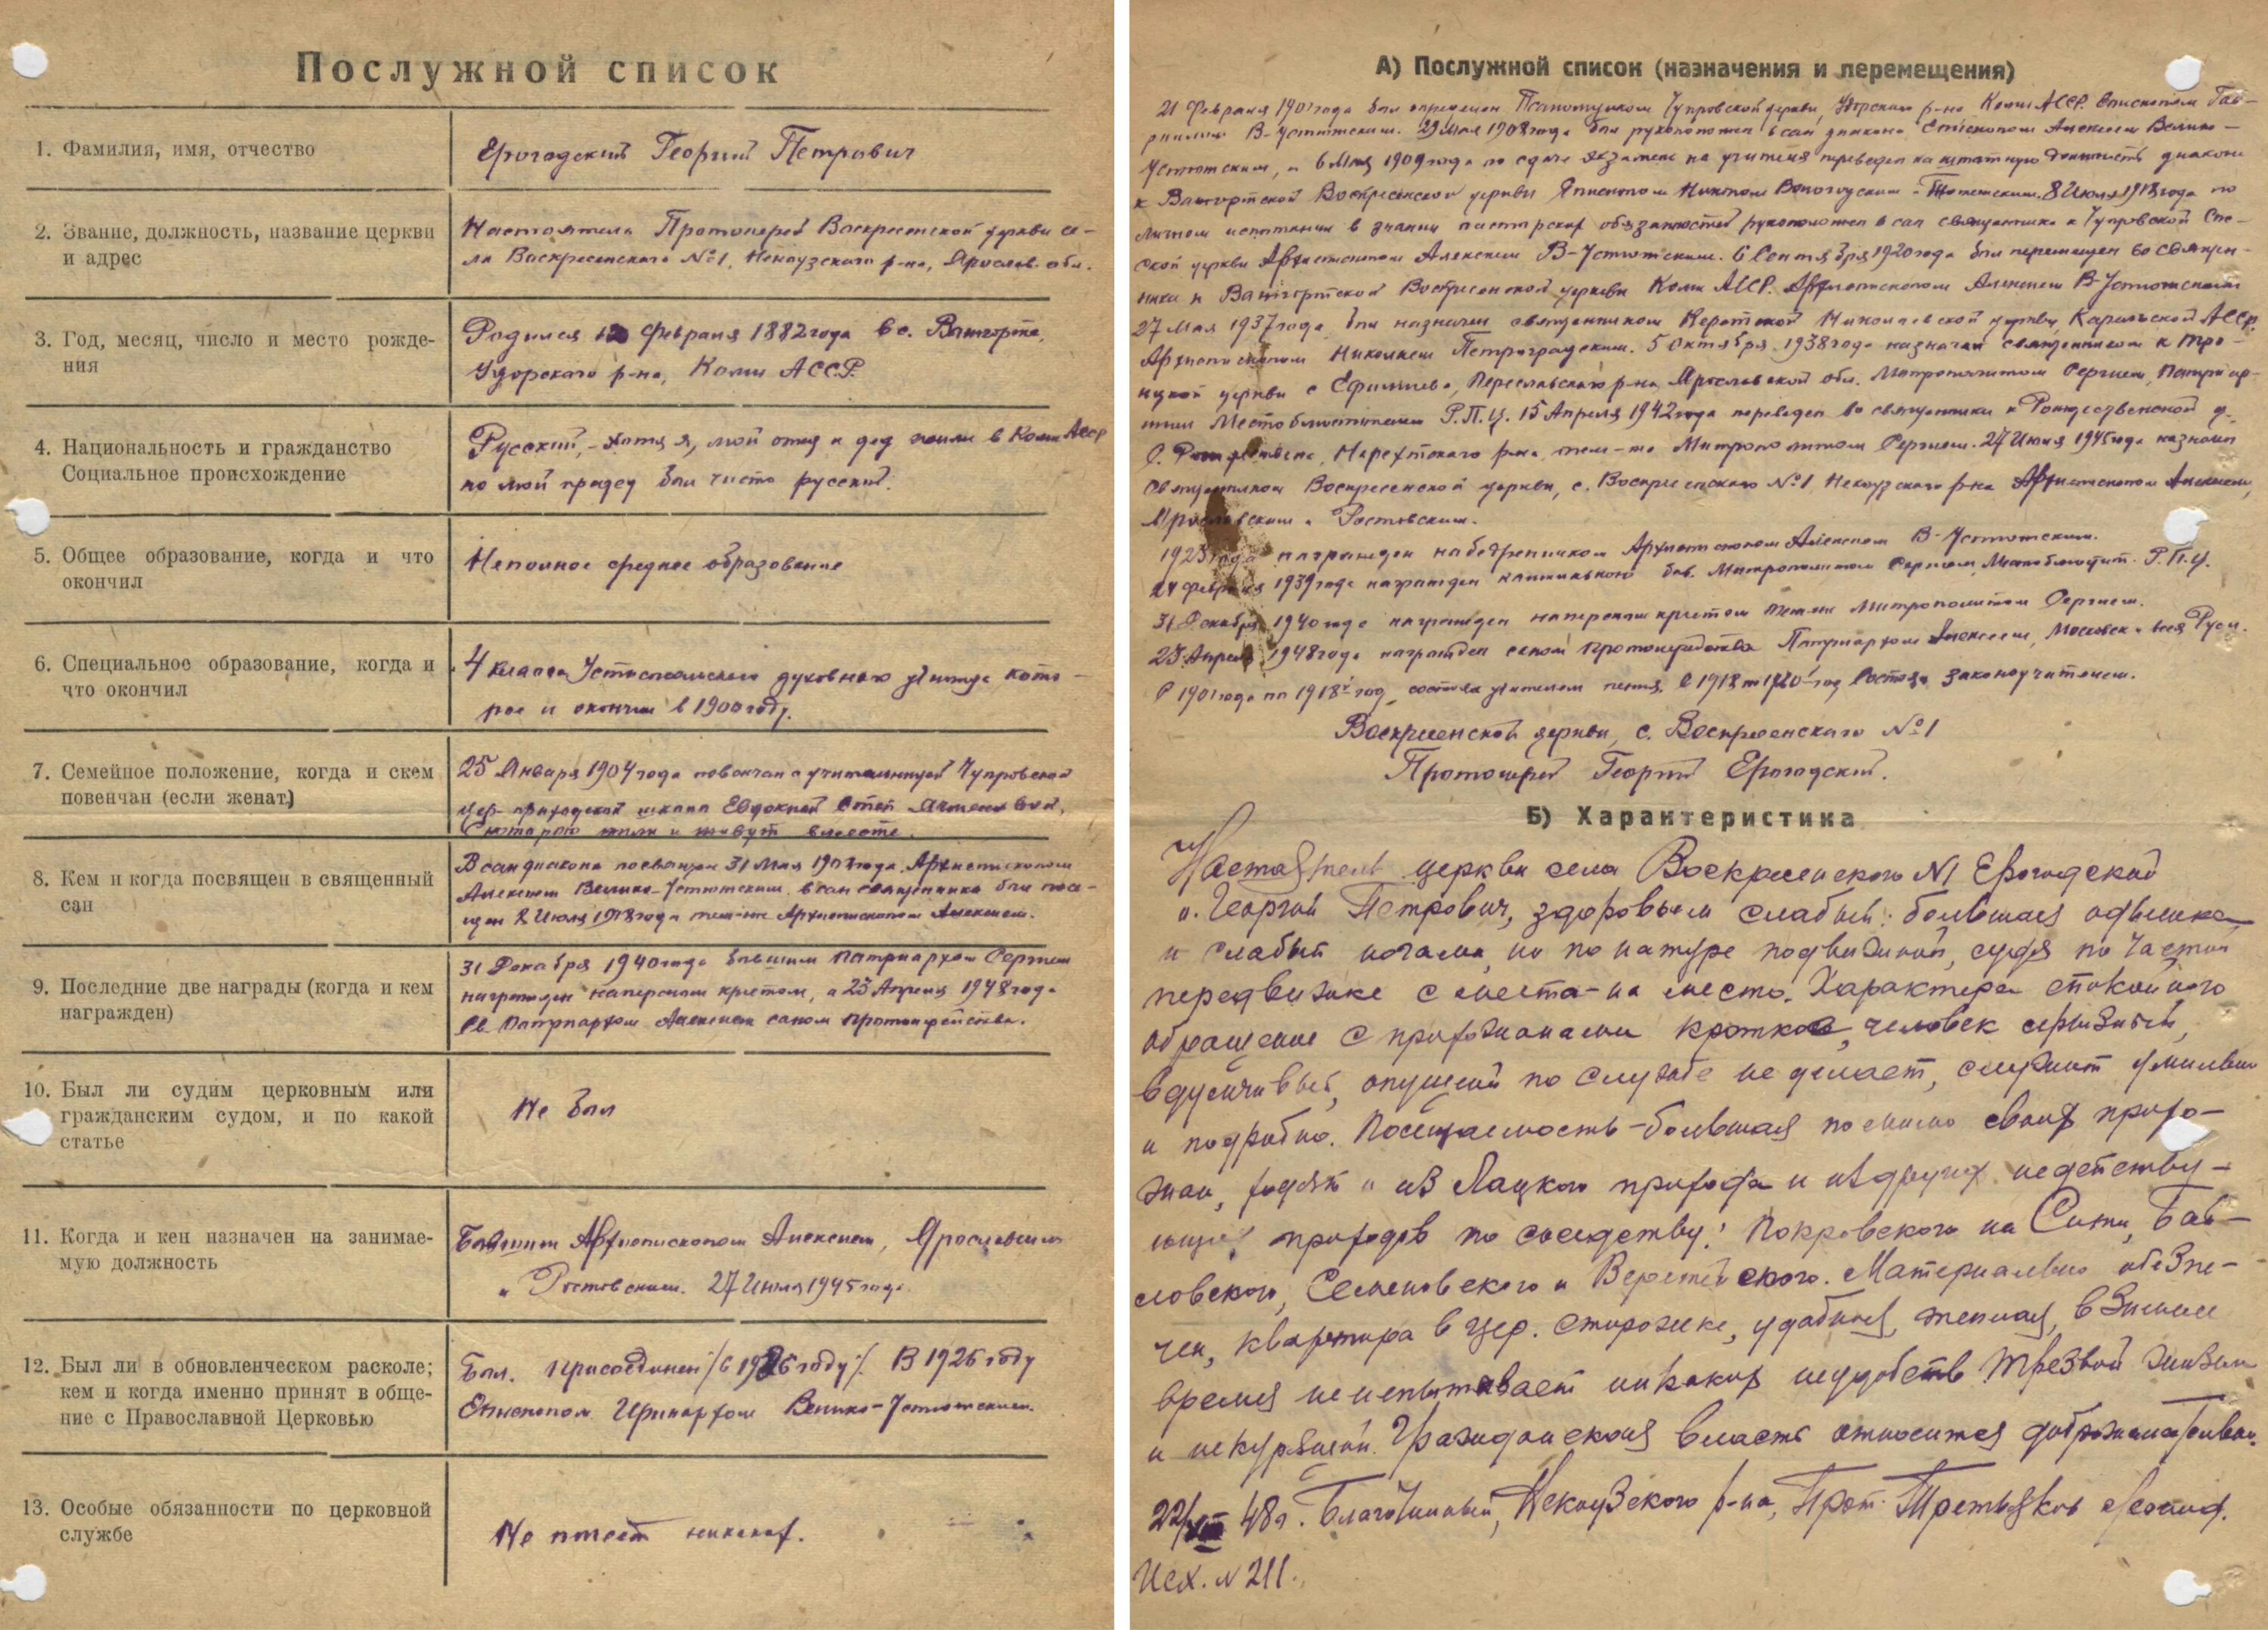 Послужной список
1. Фамилия, имя, отчество
Ерогодский Георгий Петрович
2. Звание, должность, название церкви
и адрес
Настоятель Протоиерей Воскресенской церкви се-
ла Воскресенского №1, Некоузского р-на, Яросл. обл.
3. Год, месяц, число и место рожде-
ния
Родился 12 февраля 1882 года в с. Важгорте,
Удорского р-на, Коми АССР.
4. Национальность и гражданство
Социальное происхождение
Русский, - хотя я, мой отец и дед жили в Коми АССР
но мой прадед был чисто русский.
5. Общее образование, когда и что
окончил
Неполное среднее образование
6. Специальное образование, когда и
что окончил
4 класса Устьсысольского духовного училища кото-
рое и окончил в 1900 году.
7. Семейное положение, когда и с кем
повенчан (если женат)
25 Января 1904 года повенчан с учительницей Чупровской
цер-приходской школы Евдокией Степ.
С которою жили и живут вместе.
8. Кем и когда посвящен в священный
сан
В сан диакона посвящен 31 Мая 1908 года Архиепископом
Алексием Велико-Устюгским, в сан священника был посв-
ящен 8 Июля 1918 года тем-же Архиепископом Алексием.
9. Последние две награды (когда и кем
награжден)
31 Декабря 1940 года бывшим Патриархом Сергием
награжден наперсным крестом, а 25 Апреля 1948 года
Св. Патриархом Алексием саном протоиерейства.
10. Был ли судим церковным или
гражданским судом, и по какой
статье
Не был
11. Когда и кен назначен на занимае-
мую должность
Бывшим Архиепископом Алексием, Ярославским
и Ростовским. 27 Июля 1945 года.
12. Был ли в обновленческом расколе;
кем и когда именно принят в обще-
ние с Православной Церковью
Был. Присоединен /с 1926 году/. В 1926 году
Епископом Иринархом Велико-Устюгским.
13. Особые обязанности по церковной
службе
Не имеет никаких.
А) Послужной список (назначения и перемещения)
21 Февраля 1901 года был определен Псаломщиком Чупровской церкви, Удорского р-на Коми АССР. Епископом Гав-
риилом В-Устюгским. 29 Мая 1908 года был рукоположен в сан диакона Епископом Алексием Велико-
Устюгским, а 6 Мая 1909 года по сдаче экзамена на учителя переведен на штатную должность диакона
к Важгортской Воскресенской церкви Епископом Никоном Вологодским и Тотемским. 8 Июля 1918 года по
личном испытании в знании пастырских обязанностей рукоположен в сан священника к Чупровской Спас-
ской церкви Архиепископом Алексием В-Устюгским. 6 Сентября 1920 года был перемещен во священ-
ника к Важгортской Воскресенской церкви Коми АССР. Архиепископом Алексием В-Устюгским
27 Мая 1937 года был назначен священником Керетской Николаевской церкви, Карельской АССР,
Архиепископом Николаем Петроградским. 5 Октября 1938 года назначен священником к Тро-
ицкой церкви с Ефимьево, Переславского р-на, Ярославской обл. Митрополитом Сергием, Патриар-
шим Местоблюстителем Р.П.Ц. 15 Апреля 1942 года переведен во священники к Рождественской ц.
с. Рождествена, Нерехтского р-на, тем-же Митрополитом Сергием. 27 Июля 1945 года назначен
священником Воскресенской церкви, с. Воскресенского №1 Некоузского р-на Архиепископом Алексием,
Ярославским и Ростовским.
1923 года награжден набедренником Архиепископом Алексием В-Устюгским.
24 Февраля 1939 года награжден камилавкою бл. Митрополитом Сергием, Местоблюстит. Р.П.Ц.
31 Декабря 1940 года награжден наперсным крестом тем-же Митрополитом Сергием.
25 Апреля 1948 года награжден саном протоиерейства Патриархом Алексием, Московск. и всея Руси.
С 1901 года по 1918 год состоял учителем пения, с 1918 по 1920 год состоял законоучителем.
Воскресенской церкви, с. Воскресенского №1
Протоиерей Георгий Ерогодский.
Б) Характеристика
Настоятель церкви села Воскресенского №1 Ерогодский
о. Георгий Петрович, здоровьем слабый: большая одышка
и слабый ногами, но по натуре подвижной, судя по частой
передвижке с места-на место. Характера спокойного
обращение с прихожанами кроткое, человек серьезный,
вдумчивый, опущений по службе не делает, служит умильно
и подробно. Посещаемость-большая помимо своих прихо-
жан, ходят и из Лацкого прихода и из других недейству-
ющих приходов по соседству: Покровского на Сити, Бав-
ловского, Семеновского и Веретейского. Материально обезпе-
чен, квартира в цер. сторожке, удобная, теплая, в зимнее
время не испытывает никаких неудобств. Трезвой жизни
и некурящий. Гражданская власть относится доброжелательно.
22/VIII 48 г. Благочинный, Некоузского р-на, Прот. Третьяков Леонид.
Исх. № 211.